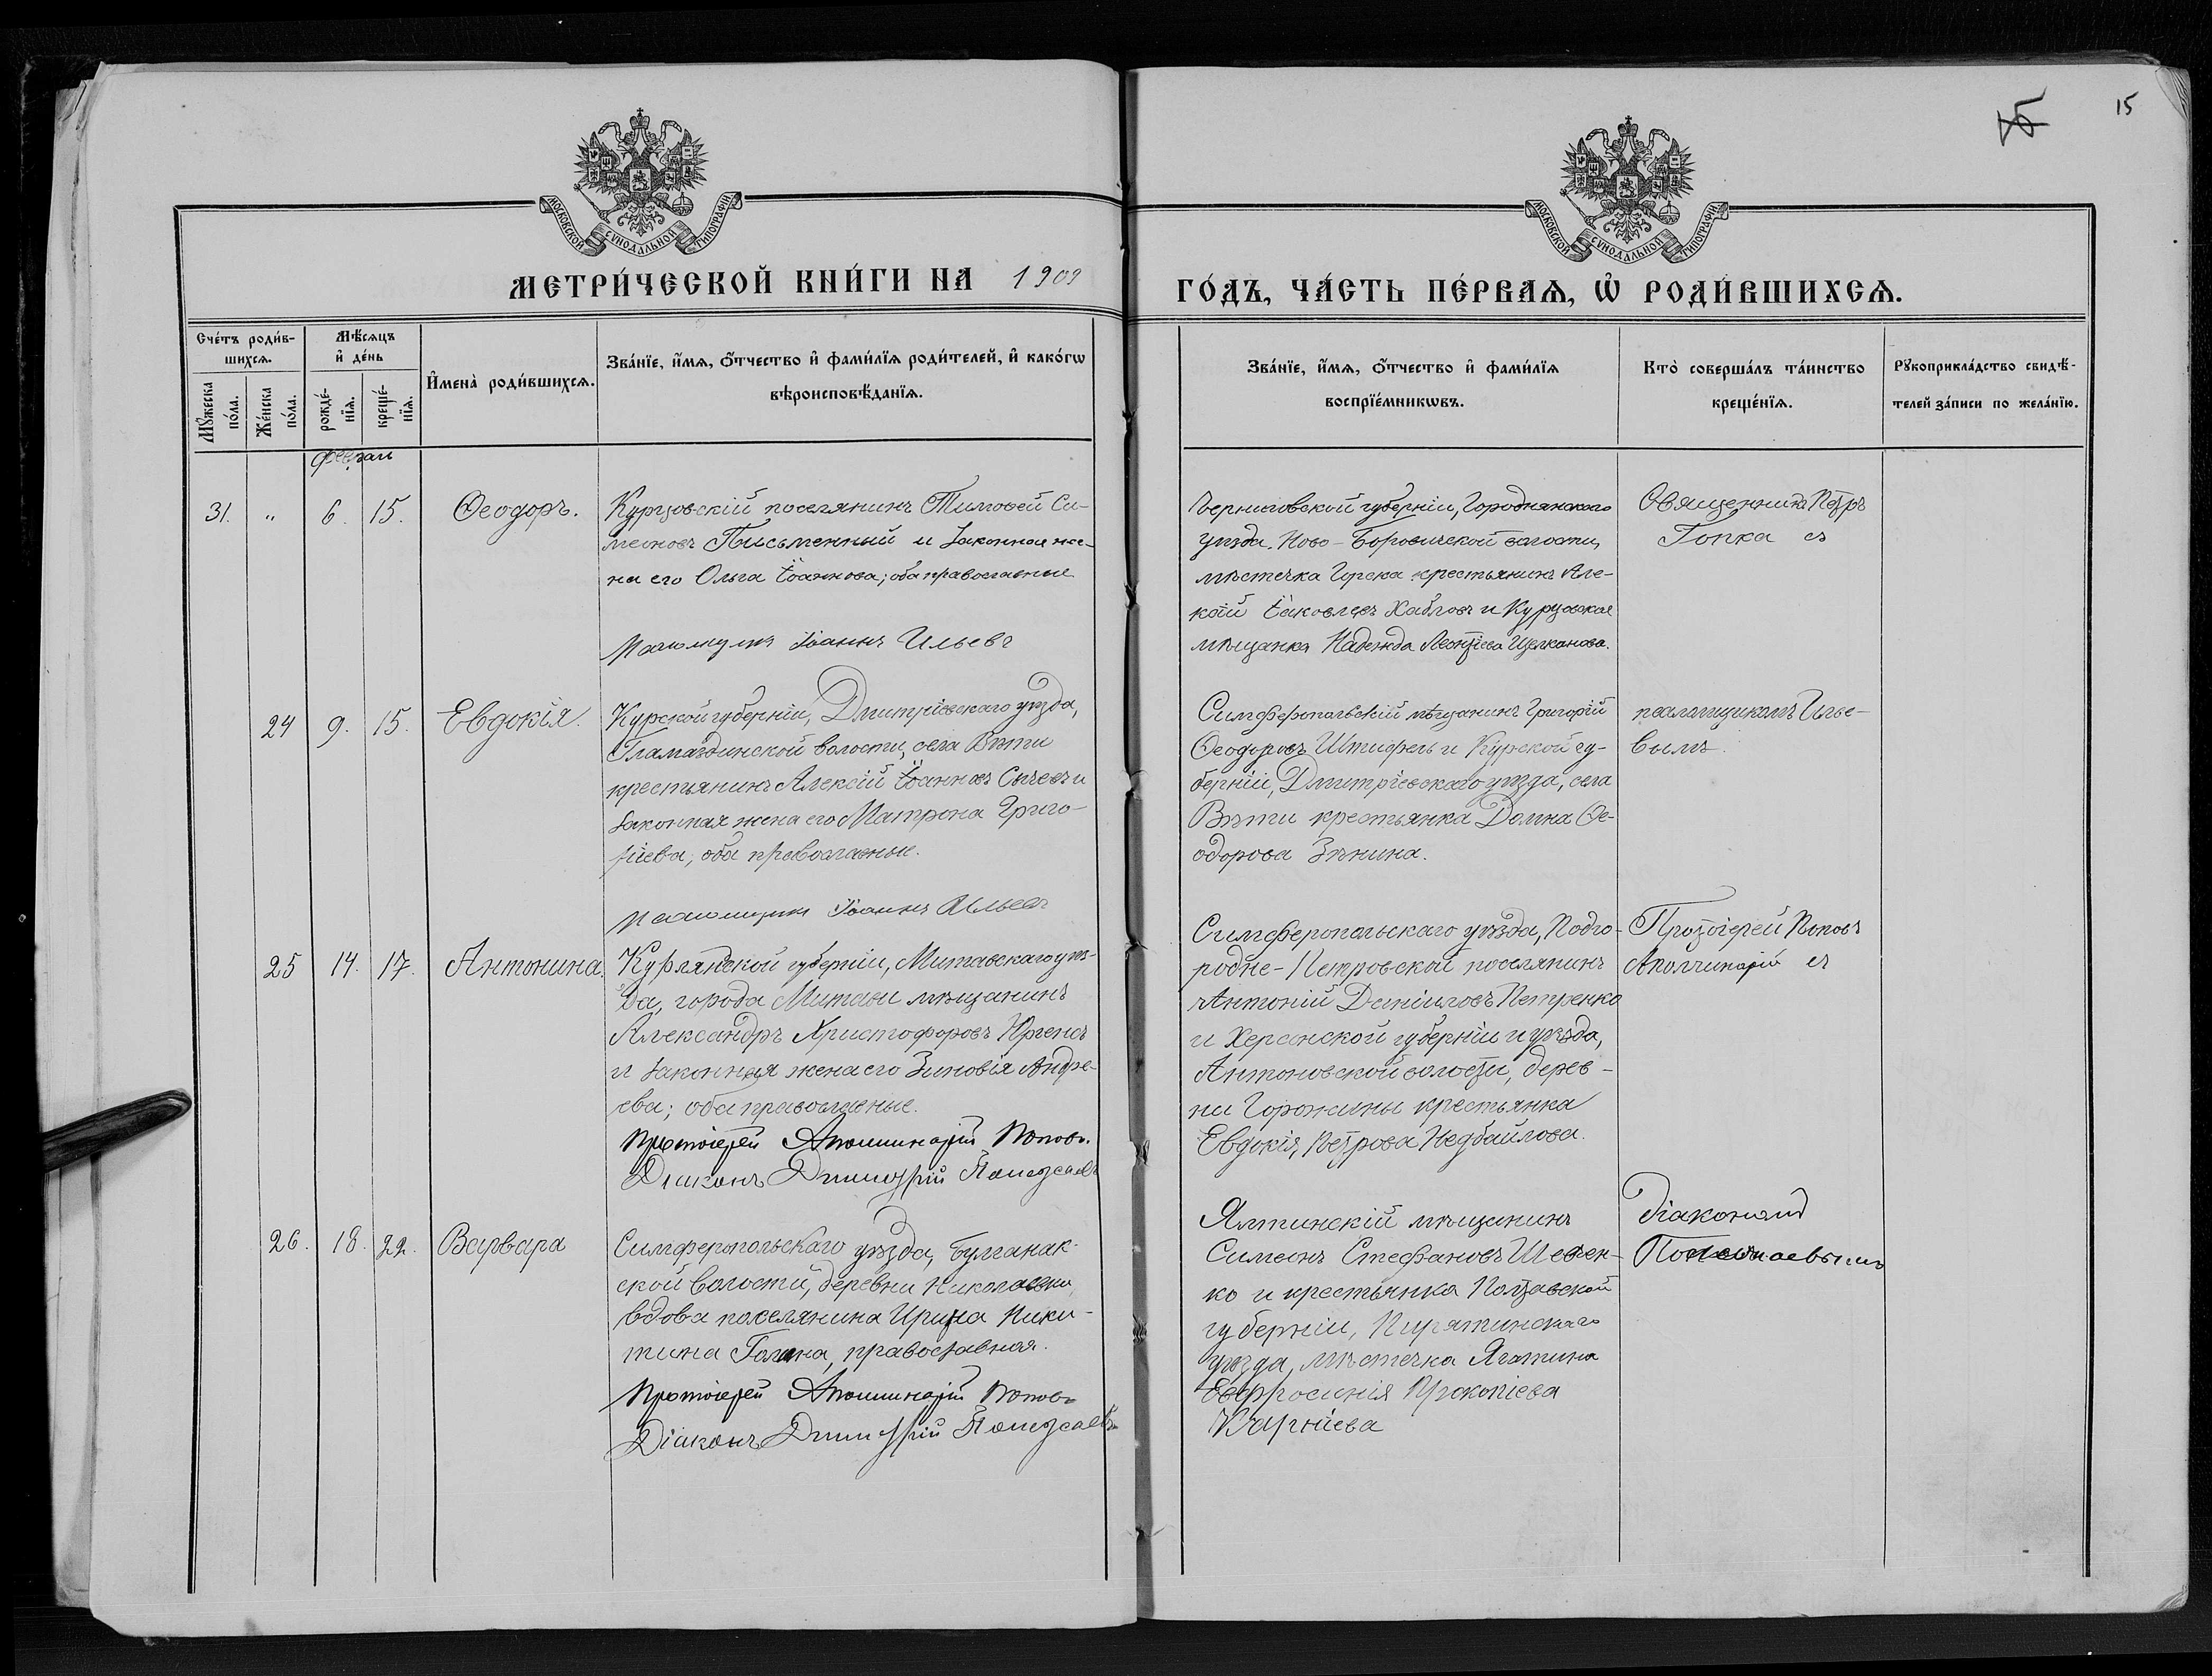 15
МОСКОВСКОЙ СѴНОДАЛЬНОЙ ТИПОГРАФІИ
МОСКОВСКОЙ СѴНОДАЛЬНОЙ ТИПОГРАФІИ
МЕТРИ́ЧЕСКОЙ КНИ́ГИ НА 1909
ГО́ДЪ, ЧА́СТЬ ПЕ́РВАѦ, Ѡ҆ РОДИ́ВШИХСѦ.
Сче́тъ роди́в-
шихсѧ.
Мꙋ́жеска
по́ла.
Же́нска
по́ла.
Мѣ́сѧцъ
и҆ де́нь
рожде́-
нїѧ.
креще́-
нїѧ.
И҆мена̀ роди́вшихсѧ.
Зва́нїе, и҆́мѧ, ѻ҆́тчество и҆ фами́лїѧ роди́телей, и҆ како́гѡ
вѣроисповѣ́данїѧ.
Зва́нїе, и҆́мѧ, ѻ҆́тчество и҆ фами́лїѧ
воспрїе́мникѡвъ.
Кто̀ соверша́лъ та́инство
креще́нїѧ.
Рꙋкоприкла́дство свидѣ́-
телей за́писи по жела́нїю.
31. " 6. 15. Ѳеодоръ.
Курцовскій поселянинъ Тимоѳей Си-
меоновъ Письменный и законная же-
на его Ольга Іоаннова; оба православные
Псаломщикъ Іоаннъ Ильевъ
Черниговской губерніи, Городнянскаго
уѣзда, Ново-Боровичской волости,
мѣстечка Горска крестьянинъ Але-
ксій Іаковлевъ Хабловъ и Курцовская
мѣщанка Надежда Леонтіева Щелканова.
Священникъ Петръ
Гопка съ
24 9. 15. Евдокія.
Курской губерніи, Дмитріевскаго уѣзда,
Гламаздинской волости, села Вѣти
крестьянинъ Алексій Іоанновъ Сычевъ и
законная жена его Матрона Григо-
ріева, оба православные.
Псаломщикъ Іоаннъ Ильевъ
Симферопольскій мѣщанинъ Григорій
Ѳеодоровъ Штифель и Курской гу-
берніи, Дмитріевскаго уѣзда, села
Вѣти крестьянка Домна Ѳе-
одорова Зѣнина.
псаломщикомъ Илье-
вымъ.
25 14. 17. Антонина.
Курляндской губерніи, Митавскаго уѣз-
да, города Митавы мѣщанинъ
Александръ Христофоровъ Юргенсъ
и законная жена его Зиновія Андре-
ева; оба православные.
Протоіерей Аполлинарій Поповъ.
Діаконъ Димитрій
Симферопольскаго уѣзда, Подго-
родне-Петровской поселянинъ
Антоній Даніиловъ Петренко
и Херсонской губерніи и уѣзда,
Антоновской волости, дерев-
ни Горожины крестьянка
Евдокія Петрова Недбайлова.
Протоіерей Поповъ
Аполлинарій съ
26. 18. 22. Варвара
Симферопольскаго уѣзда, Булганак-
ской волости, деревни Николаевки,
вдова поселянина Ирина Ники-
тина православная.
Протоіерей Аполлинарій Поповъ
Діаконъ Димитрій
Ялтинскій мѣщанинъ
Симеонъ Стефановъ Шевчен-
ко и крестьянка Полтавской
губерніи, Пирятинскаго
уѣзда, мѣстечка Яготина
Евфросинія Прокопіева
Карнѣева
діакономъ